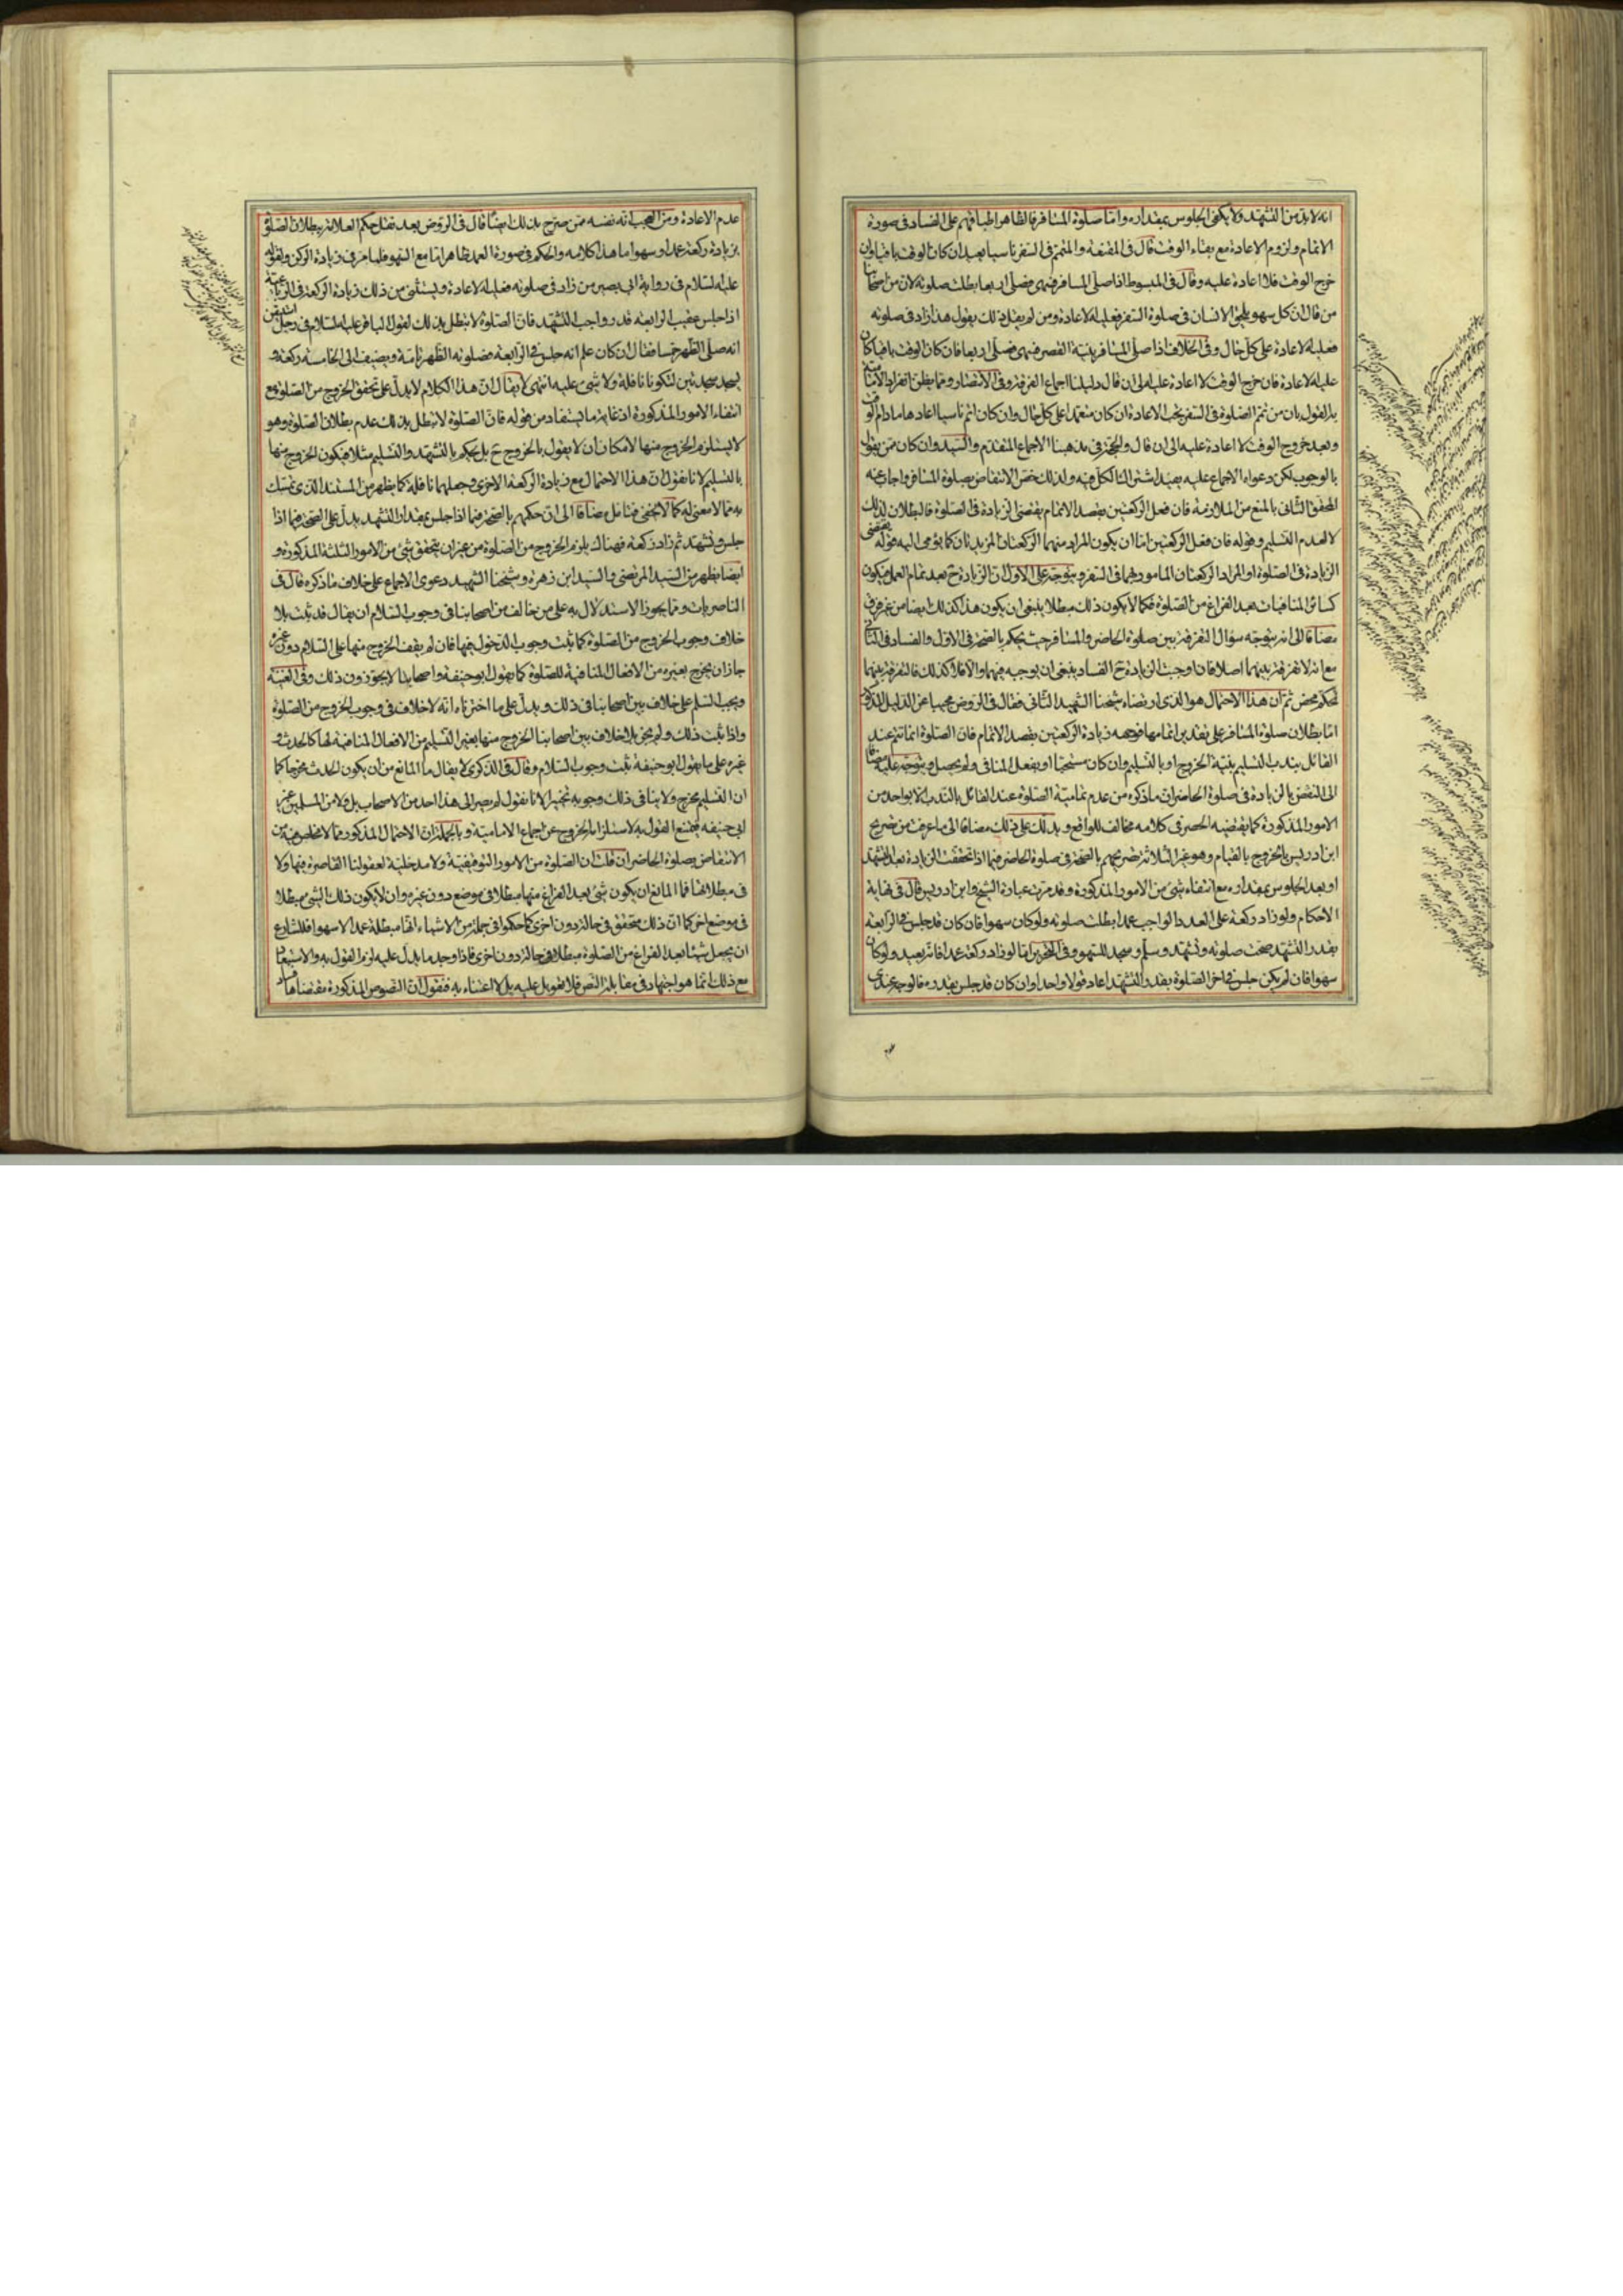 انه لا بد من التشهد ولا يكفى الجلوس بمقداره واما صلوة المسافر فالظاهر اطباقهم على الفساد فى صورة
الاتمام ولزوم الاعادة مع بقاء الوقت قال فى المقنعة والمتمم فى السفر ناسيا يعيد ان كان الوقت باقيا وان
خرج الوقت فلا اعادة عليه وقال فى المبسوط اذا صلى المسافر فنهى فصلى اربعا بطلت صلوته لان من اصحابنا
من قال ان كل سهو يلحق الانسان فى صلوة السفر فعليه الاعادة ومن لم يقل ذلك يقول هذا زاد فى صلوته
فعليه الاعادة على كل حال وفى الخلاف اذا صلى المسافر بنية القصر فنهى فصلى اربعا فان كان الوقت باقيا كان
عليه الاعادة فان خرج الوقت لا اعادة عليه الى ان قال دليلنا اجماع الفرقة وفى الانتصار ومما يظن انفراد الامامية
به القول بان من تمم الصلوة فى السفر يجب الاعادة ان كان متعمدا على كل حال وان كان اتم ناسيا اعادها مادام فى الوقت
وبعد خروج الوقت لا اعادة عليه الى ان قال والحجة فى مذهبنا الاجماع المتقدم والسيد وان كان ممن يقول
بالوجوب لكن دعواه الاجماع عليه يفيد اشتراك الكل فيه ولذلك خص الانتقاض بصلوة المسافر واجاب عنه
المحقق الثانى بالمنع من الملازمة فان فعل الركعتين بقصد الاتمام يقتضى الزيادة فى الصلوة فالبطلان لذلك
لا لعدم التسليم وقوله فان فعل الركعتين اما ان يكون المراد منهما الركعتان المزيدتان كما يؤمى اليه قوله يقتضى
الزيادة فى الصلوة او المراد الركعتان المامور بهما فى السفر ويتوجه على الاول ان الزيادة ح بعد تمام العمل فيكون
كسائر المنافيات بعد الفراغ من الصلوة فكما لا يكون ذلك مبطلا ينبغى ان يكون هذا كذلك ايضا من غير فرق
مضافا الى انه يتوجه سؤال التفرقة بين صلوة الحاضر والمسافر حيث يحكم بالصحة فى الاول والفساد فى الثانى
مع انه لا تفرقة بينهما اصلا فان اوجبت الزيادة ح الفساد ينبغى ان يوجبه فيهما والا فلا كذلك فالتفرقة بينهما
تحكم محض ثم ان هذا الاحتمال هو الذى ارتضاه شيخنا الشهيد الثانى فقال فى الروض مجيبا عن الدليل المذكور
اما بطلان صلوة المسافر على تقدير اتمامها فوجهه زيادة الركعتين بقصد الاتمام فان الصلوة انما تتم عند
القائل بندب التسليم بنية الخروج او بالتسليم وان كان مستحبا او بفعل المنافى ولم يحصل ويتوجه عليه مضافا
الى النقض بالزيادة فى صلوة الحاضر ان ما ذكره من عدم تمامية الصلوة عند القائل بالندب الا بواحد من
الامور المذكورة كما يقتضيه الحصر فى كلامه مخالف للواقع ويدلك على ذلك مضافا الى ما عرفت من تصريح
ابن ادريس بالخروج بالقيام وهو غير الثلاثة تصريحهم بالصحة فى صلوة الحاضر فيما اذا تحققت الزيادة بعد التشهد
او بعد الجلوس بمقداره مع انتفاء شىء من الامور المذكورة وقد مرت عبارة الشيخ وابن ادريس قال فى نهاية
الاحكام ولو زاد ركعة على العدد الواجب عمدا بطلت صلوته ولو كان سهوا فان كان قد جلس فى الرابعة
بقدر التشهد صحت صلوته وتشهد وسلم وسجد للسهو وفى التحرير اما لو زاد ركعة عمدا فانه يعيد ولو كان
سهوا فان لم يكن جلس فى اخر الصلوة بقدر التشهد اعاد قولا واحدا وان كان قد جلس بقدره فالوجه عندى
عدم الاعادة ومن العجب انه نفسه ممن صرح بذلك ايضا قال فى الروض بعد نقل حكم العلامة ببطلان الصلوة
بزيادة ركعة عمدا وسهوا ما هذا كلامه والحكم فى صورة العمد ظاهر اما مع السهو فلما مر فى زيادة الركن ولقوله
عليه السلام فى رواية ابى بصير من زاد فى صلوته فعليه الاعادة ويستثنى من ذلك زيادة الركعة فى الرباعية
اذا جلس عقيب الرابعة قدر واجب التشهد فان الصلوة لا تبطل بذلك لقول الباقر عليه السلام فى رجل استيقن
انه صلى الظهر خمسا فقال ان كان علم انه جلس فى الرابعة فصلوته الظهر تامة ويضيف الى الخامسة ركعة و
يسجد سجدتين لتكونا نافلة ولا شىء عليه انتهى لا يقال ان هذا الكلام لا يدل على تحقق الخروج من الصلوة مع
انتفاء الامور المذكورة اذ غاية ما يستفاد من قوله فان الصلوة لا تبطل بذلك عدم بطلان الصلوة وهو
لا يستلزم الخروج منها لامكان ان لا يقول بالخروج ح بل يحكم بالتشهد والتسليم مثلا فيكون الخروج منها
بالتسليم لانا نقول ان هذا الاحتمال مع زيادة الركعة الاخرى وجعلهما نافلة كما يظهر من المستند الذى تمسك
به مما لا معنى له كما لا يخفى فتامل مضافا الى ان حكمهم بالصحة فيما اذا جلس بمقدار التشهد يدل على الصحة فيما اذا
جلس وتشهد ثم زاد ركعة فهناك يلزم الخروج من الصلوة من غير ان يتحقق شىء من الامور الثلثة المذكورة و
ايضا يظهر من السيد المرتضى والسيد ابن زهرة وشيخنا الشهيد دعوى الاجماع على خلاف ما ذكره قال فى
الناصريات ومما يجوز الاستدلال به على من خالف من اصحابنا فى وجوب السلام ان يقال قد ثبت بلا
خلاف وجوب الخروج من الصلوة كما ثبت وجوب الدخول فيها فان لم يقف الخروج منها على السلام دون غيره
جاز ان يخرج بغيره من الافعال المنافية للصلوة كما يقول ابو حنيفة واصحابنا لا يجوزون ذلك وفى الغنية
ويجب السلم على خلاف بين اصحابنا فى ذلك ويدل على ما اخترناه انه لا خلاف فى وجوب الخروج من الصلوة
واذا ثبت ذلك ولم يجز بلا خلاف بين اصحابنا الخروج منها بغير التسليم من الافعال المنافية لها كالحدث و
غيره على ما يقول ابو حنيفة ثبت وجوب السلام وقال فى الذكرى لا يقال ما المانع من ان يكون الحدث مخرجا كما
ان التسليم مخرج ولا ينافى ذلك وجوبه تخييرا لانا نقول لم يصر الى هذا احد من الاصحاب بل ولا من المسلمين غير
ابى حنيفة فيمتنع القول به لاستلزامه الخروج عن اجماع الامامية وبالجملة ان الاحتمال المذكور مما لا مخلص فيه من
الانتقاض بصلوة الحاضر ان قلت ان الصلوة من الامور التوقيفية ولا مدخلية لعقولنا القاصرة فيها ولا
فى مبطلاتها فما المانع ان يكون شىء بعد الفراغ منها مبطلا فى موضع دون غيره وان لا يكون ذلك الشىء مبطلا
فى موضع اخر كما ان ذلك متحقق فى حالة دون اخرى كما حكموا فى جملة من الاشياء انها مبطلة عمدا لا سهوا فللشارع
ان يجعل شيئا بعد الفراغ من الصلوة مبطلا فى حالة دون اخرى فاذا وجد ما يدل عليه لزم القول به والاستبعاد
مع ذلك انما هو اجتهاد فى مقابلة النص فلا تعويل عليه بل لا اعتناء به فنقول ان النصوص المذكورة مقتضاها فساد